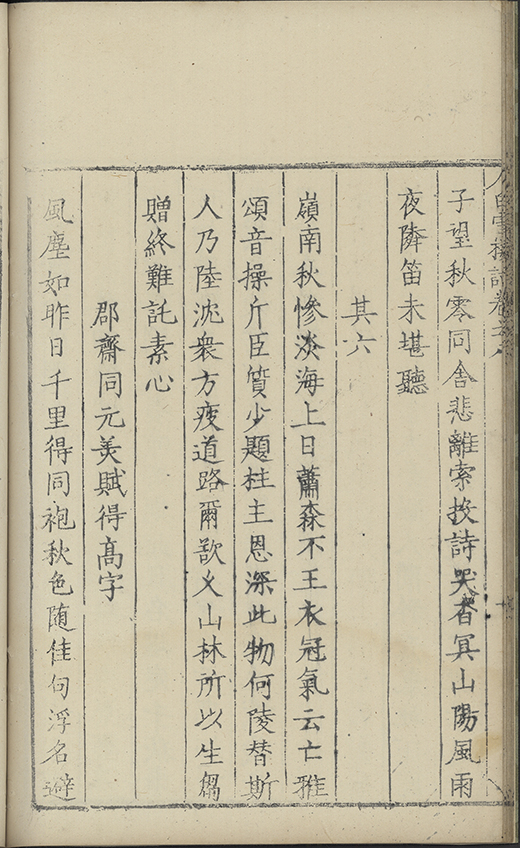 子望秋零同舍悲離索投詩哭杳冥山陽風雨
夜隣笛未堪聽
其六
嶺南秋慘淡海上日蕭森不王衣冠氣云亡雅
頌音操斤臣質少題柱主恩深此物何陵替斯
人乃陸沈衆方疲道路爾歆乂山林所以生芻
贈終難託素心
郡齋同元美賦得高字
風塵如昨日千里得同袍秋色随佳句浮名避